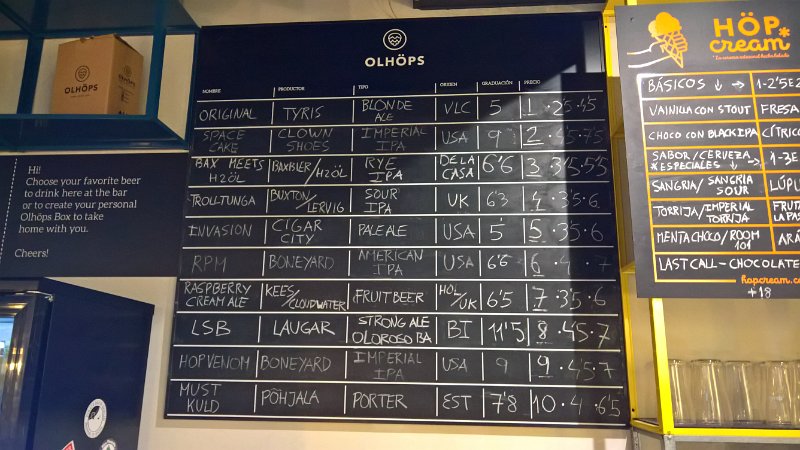 OLHÖPS
OLHÖPS
NOMBRE PRODUCTOR TIPO ORIGEN GRADUACIÓN PRECIO
ORIGINAL TYRIS BLONDE ALE VLC 5 1 · 2'5 · 4'5
SPACE CAKE CLOWN SHOES IMPERIAL IPA USA 9 2
BAX MEETS H2ÖL BAXBIER/H2ÖL RYE IPA DE LA CASA 6'6 3 3'5 · 5'5
TROLLTUNGA BUXTON/LERVIG SOUR IPA UK 6'3 4 · 3'5 · 6
INVASION CIGAR CITY PALE ALE USA 5 5 · 3'5 · 6
RPM BONEYARD AMERICAN IPA USA 6'6 6 · 4 · 7
RASPBERRY CREAM ALE KEES/CLOUDWATER FRUIT BEER HOL/UK 6'5 7 · 3'5 · 6
LSB LAUGAR STRONG ALE OLOROSO BA BI 11'5 8 · 4'5 · 7
HOP VENOM BONEYARD IMPERIAL IPA USA 9 9 · 4'5 · 7
MUST KULD PÕHJALA PORTER EST 7'8 10 · 4 · 6'5
Hi!
Choose your favorite beer
to drink here at the bar
or to create your personal
Olhöps Box to take
home with you.
Cheers!
HÖP
cream
BÁSICOS ↓ → 1-2'5E
VAINILLA CON STOUT FRESA
CHOCO CON BLACK IPA CÍTRIC
SABOR/CERVEZA
*ESPECIALES ↓ → 1-3E
SANGRIA/SANGRIA SOUR LÚPU
TORRIJA/IMPERIAL TORRIJA FRUTA LA PAS
MENTA CHOCO/ROOM 101 ARÁ
LAST CALL - CHOCOLATE
hopcream.c
+18